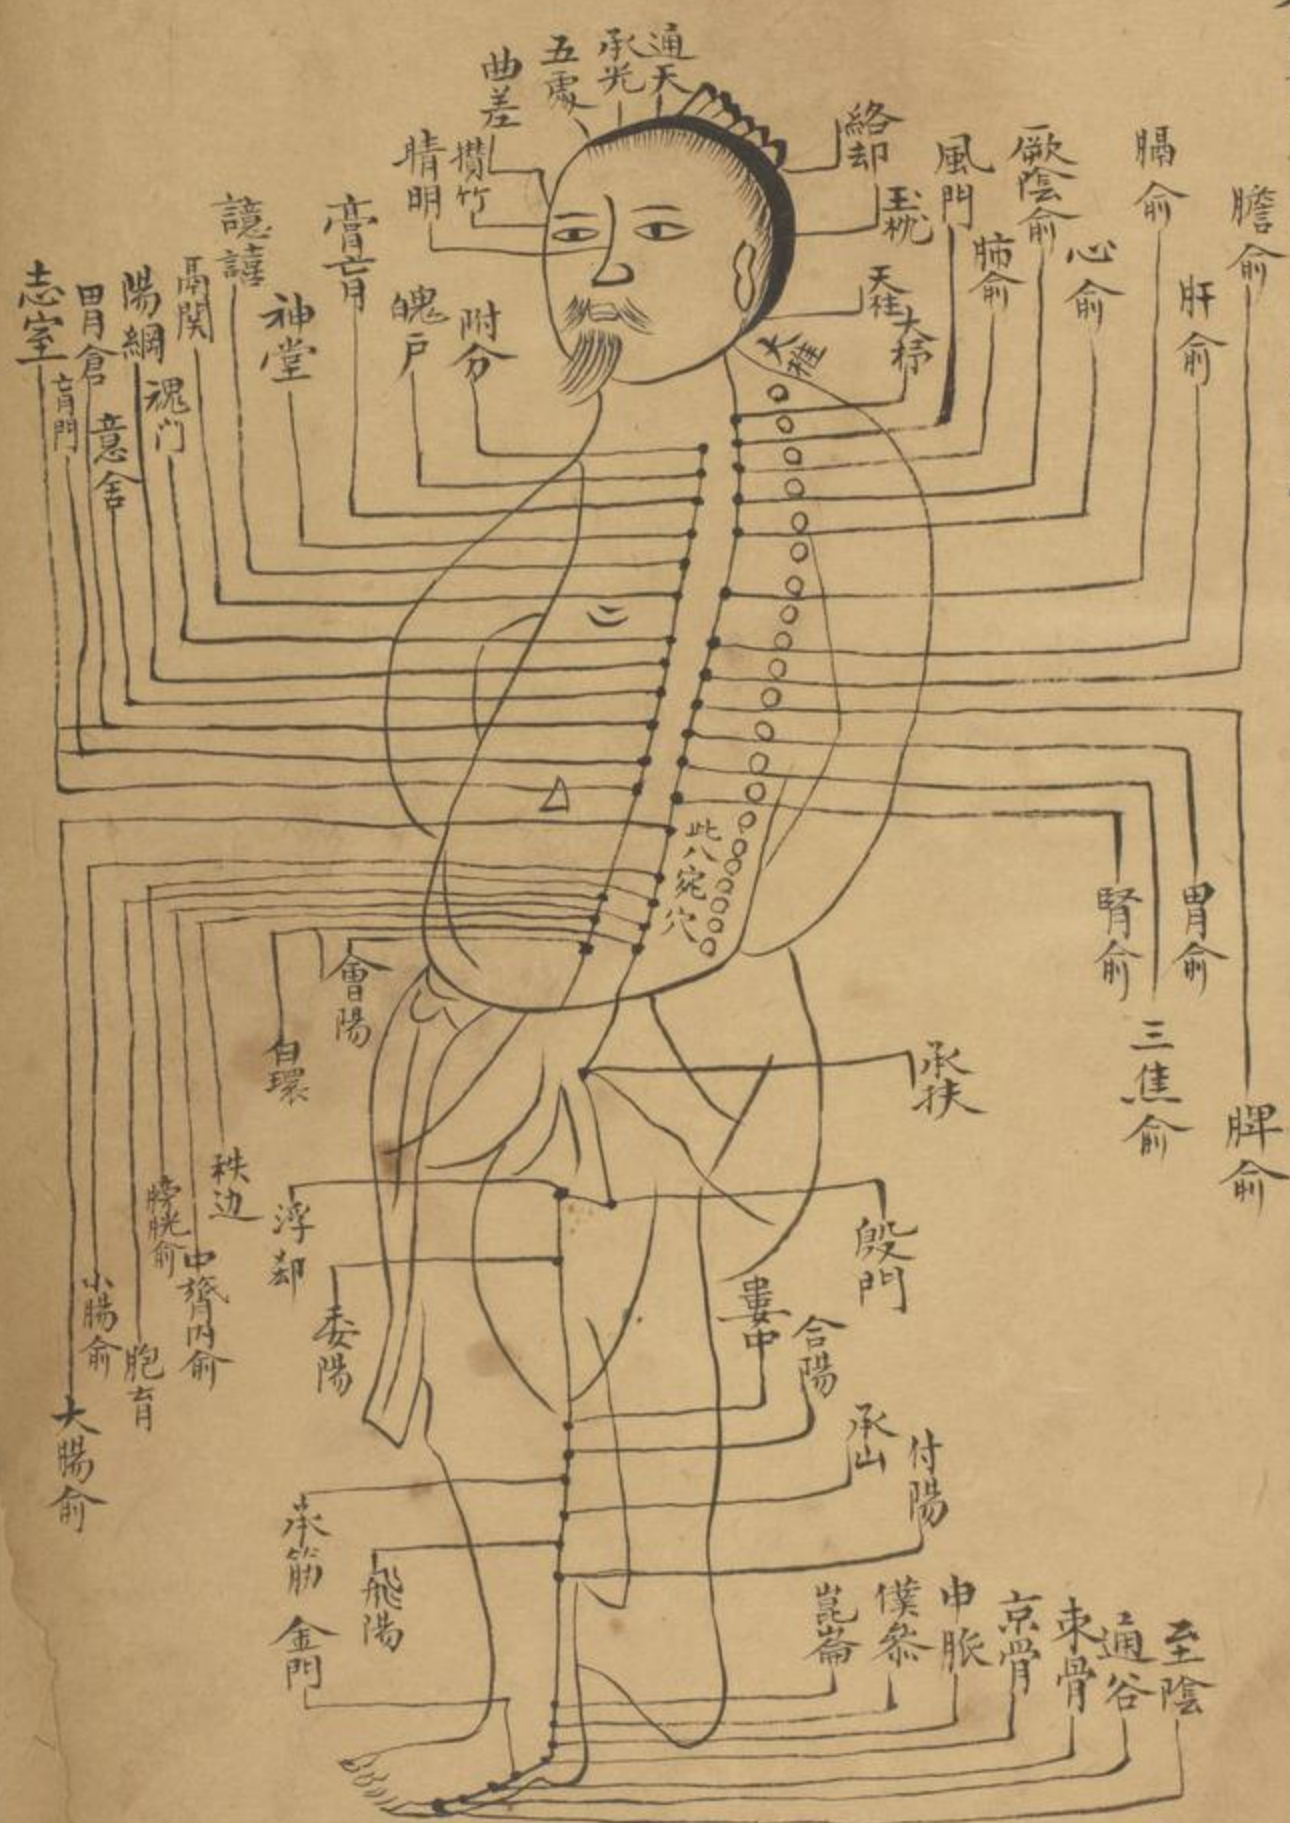 通天
承光
五處
曲差
攢竹
睛明
絡却
玉枕
天柱
大杼
大椎
風門
肺俞
厥陰俞
心俞
膈俞
肝俞
膽俞
附分
魄戶
膏肓
神堂
譩譆
鬲関
魂门
陽綱
意舍
胃倉
肓門
志室
此八窌穴
腎俞
胃俞
三焦俞
脾俞
會陽
白環
秩边
中膂内俞
膀胱俞
胞肓
小腸俞
大腸俞
承扶
浮郄
殷門
委陽
婁中
合陽
承山
付陽
承筋
飛陽
金門
崑崙
僕叅
申脈
京骨
束骨
通谷
至陰